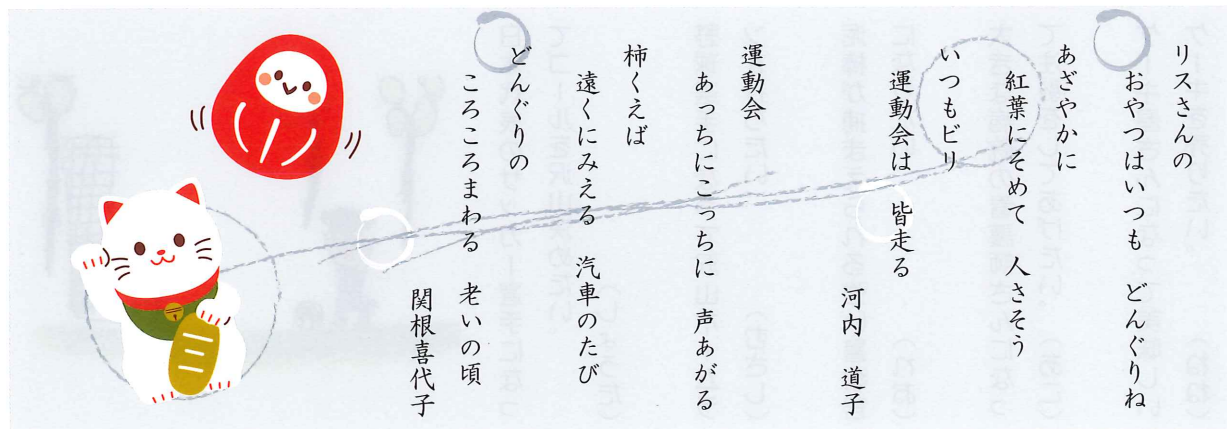 リスさんの
おやつはいつも どんぐりね
あざやかに
紅葉にそめて 人さそう
いつもビリ
運動会は 皆走る
河内 道子
運動会
あっちにこっちに 声あがる
柿くえば
遠くにみえる 汽車のたび
どんぐりの
ころころまわる 老いの頃
関根喜代子